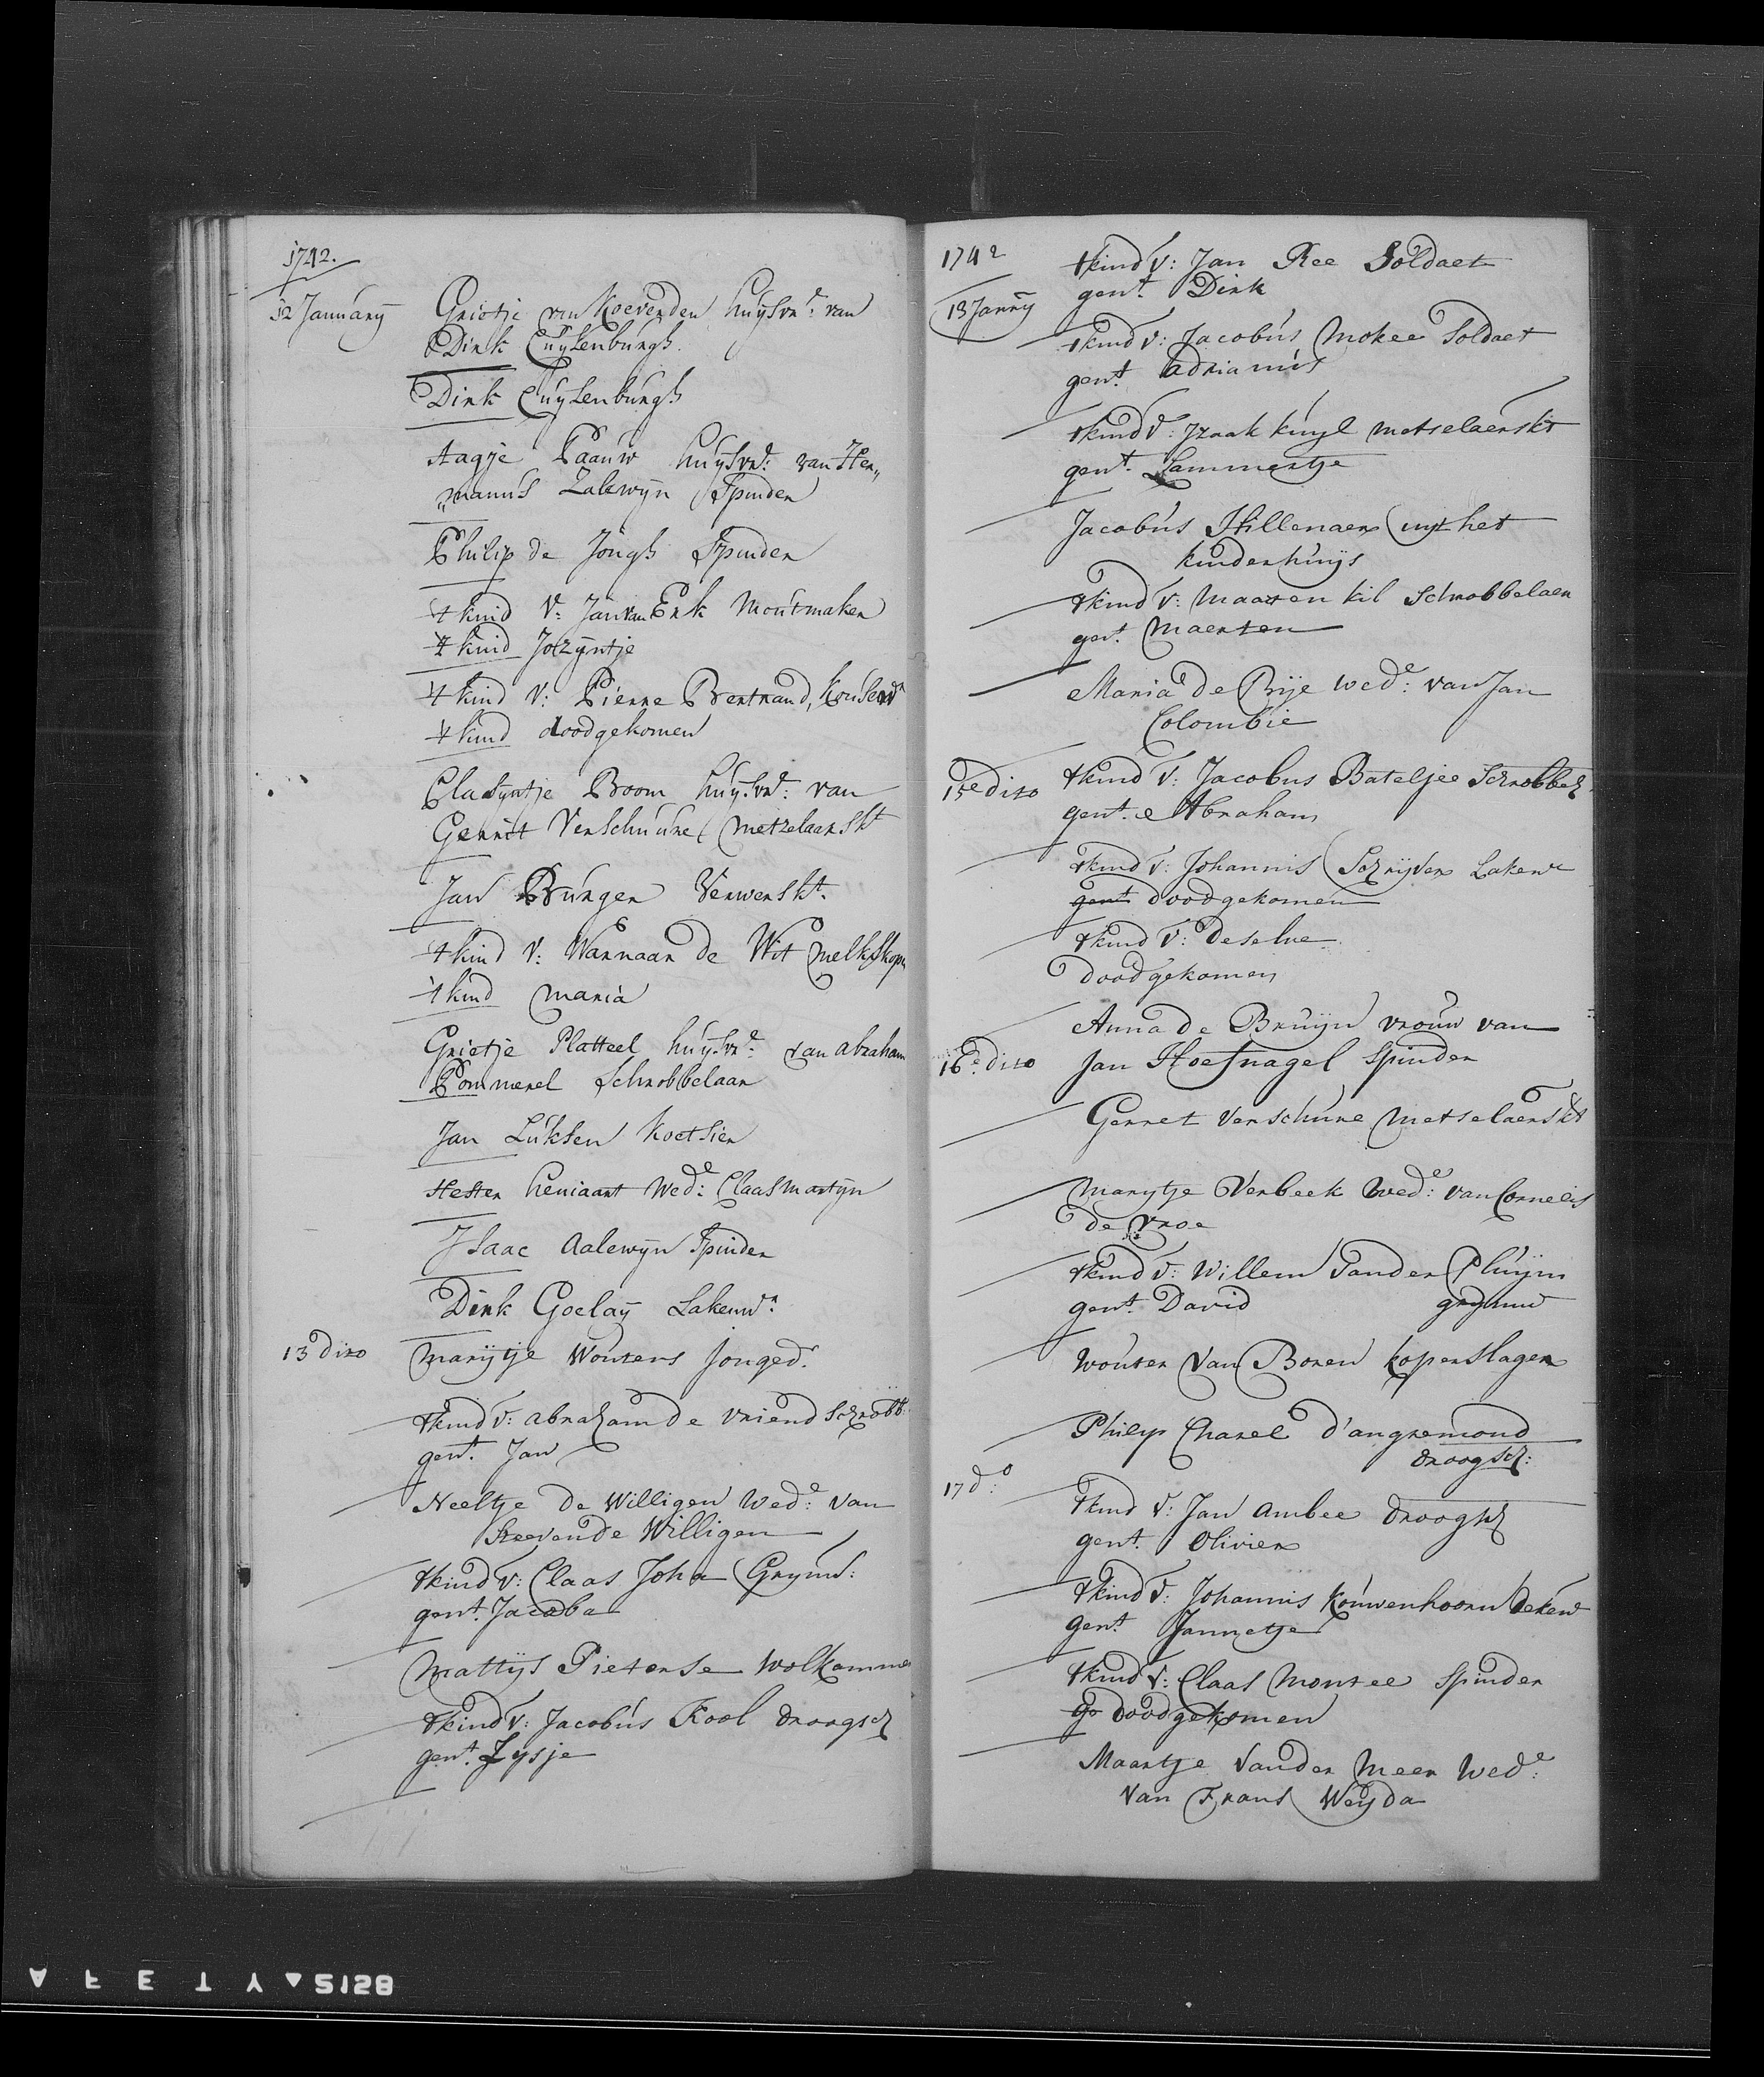 1742.
12 January Grietje van Koeverden huysvr.e van
Dirk Cuylenburgh.
Dirk Cuylenburgh
Aagje Paauw huysvr.e van Her„
„manus Zalewyn Spinder
Philip de Jongh Spinder
't kind V: Jan van Erk Moutmaker
't kind Jozyntje
't kind V: Pierre Bertrand,
't kind doodgekomen
Clasyntje Boom huysvr.e van
Gerrit Verschuure metzelaarskt
Jan Burger Verwerskt.
't kind V: Warnaar de Wit melkskop
't kind maria
Grietje Platteel huysvr.e van abraham
Pommerel Schrobbelaar
Jan Luksen Koetsier
Hester heniaart Wed.e Claas Martyn
Isaac Aalewyn Spinder
Dirk Goelay Lakenw.r
13 dito Marijtje Wouters Jonged.
tkind V: abraham de vriend Schrobb:
gen.t Jan
Neeltje de Willigen Wed.e van
Steeven de Willigen
tkind V: Claas Joha Grynw:
gen.t Jacoba
Mattijs Pieterse Wolkammer
tkind V: Jacobus Kool droogsch
gen.t Zysje
1742 tkind V: Jan Ree Soldaet
13 Janry gen.t Dirk
tkind V: Jacobus Mokee Soldaet
gen.t adrianus
tkind V: Jzaak kuyl metselaerskt
gen.t Lammertje
Jacobus Hillenaer uyt het
kinderhuijs
tkind V: Maarten kil Schrobbelaer
gen.t Maerten
Maria de Brije wed.e van Jan
Colombie
15e dito tkind V: Jacobus Bateljee Schrobbel
gen.t Abraham
tkind V: Johannis Schrijver Lakenw
gent doodgekomen
tkind V: deselve
doodgekomen
Anna de Bruijn vrouw van
16e dito Jan Hoefnagel Spinder
Gerret Verschure Metselaerskt
Marytje Verbeek Wed.e van Cornelis
de Vroe
tkind V: Willem Vander Pluijm
gen.t David grynw
Wouter Van Boren koperslager
Philip Charel d'angremond
droogsch:
17 do: tkind V: Jan Ambee droogsch
gen.t Olivier
tkind V: Johannis Kouwenhoorn dekenw
gen.t Jannetje
tkind V: Claas Montee Spinder
ge doodgekomen
Maartje Vander Meer Wed.e
Van Frans Weyda
AFETY 5128